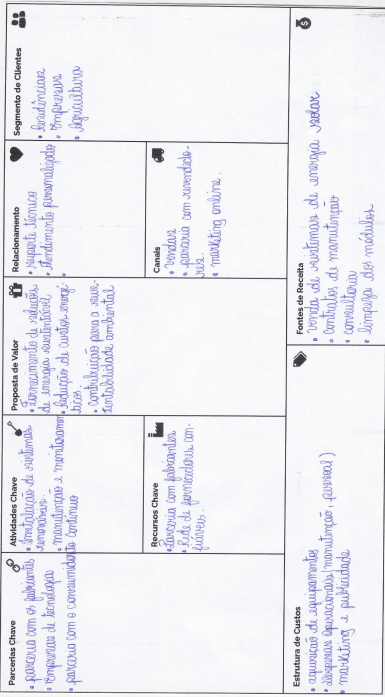 Parcerias Chave
• parceria com os fabricantes
• Empresas de tecnologia
• parceria com o consumidor
Atividades Chave
• Instalação de sistemas
renováveis.
• manutenção e monitoramen
to contínuo
Recursos Chave
• Parceria com fabricantes
• Rede de fornecedores con-
fiáveis.
Proposta de Valor
• Fornecimento de soluções
de energia sustentável
• Redução de custos energé-
ticos
• Contribuição para a sus-
tentabilidade ambiental
Relacionamento
• suporte técnico
• Atendimento personalizado
Canais
• vendas
• parceria com revendedo-
res.
• marketing online.
Segmento de Clientes
• Residências
• Empresas
• Agricultura
Estrutura de Custos
• aquisição de equipamentos
• despesas operacionais (manutenção, pessoal)
• marketing e publicidade
Fontes de Receita
• venda de sistemas de energia solar
• Contratos de manutenção
• consultoria
• limpeza dos módulos